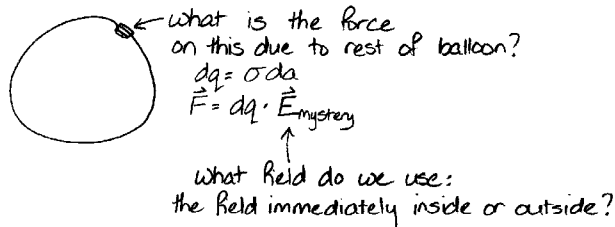 what is the force
on this due to rest of balloon?
dq = σda
F⃗ = dq · E⃗mystery
what field do we use:
the field immediately inside or outside?